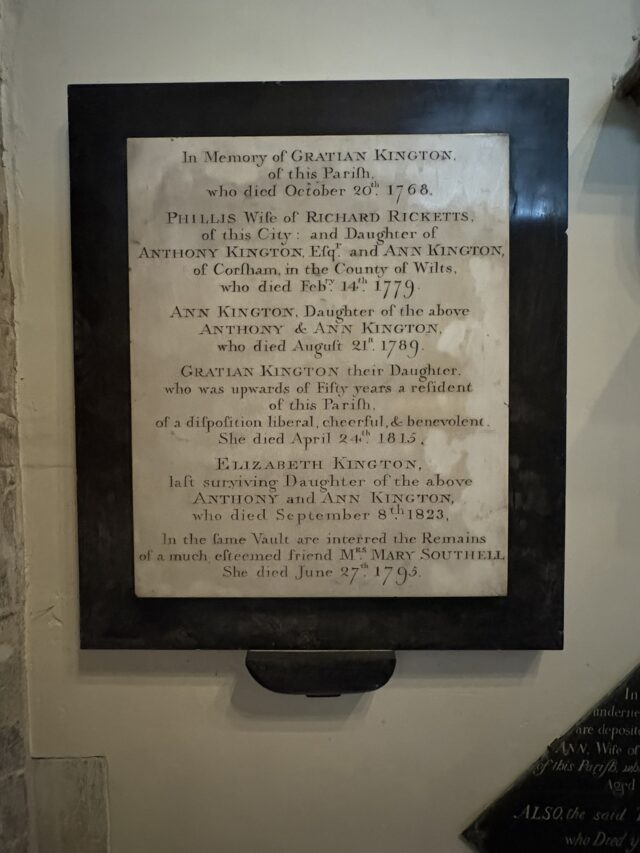 In Memory of GRATIAN KINGTON,
of this Pariſh,
who died October 20th. 1768.
PHILLIS Wife of RICHARD RICKETTS,
of this City: and Daughter of
ANTHONY KINGTON, Eſqr. and ANN KINGTON,
of Corſham, in the County of Wilts,
who died Febry. 14th. 1779.
ANN KINGTON, Daughter of the above
ANTHONY & ANN KINGTON,
who died Auguſt 21st. 1789.
GRATIAN KINGTON their Daughter,
who was upwards of Fifty years a reſident
of this Pariſh,
of a diſpoſition liberal, cheerful, & benevolent.
She died April 24th. 1815,
ELIZABETH KINGTON,
laſt surviving Daughter of the above
ANTHONY and ANN KINGTON,
who died September 8th. 1823,
In the ſame Vault are interred the Remains
of a much eſteemed friend Mrs. MARY SOUTHELL
She died June 27th. 1795.
In
are
ANN, Wife of
of this Pariſh,
Aged
ALSO, the said
who Died